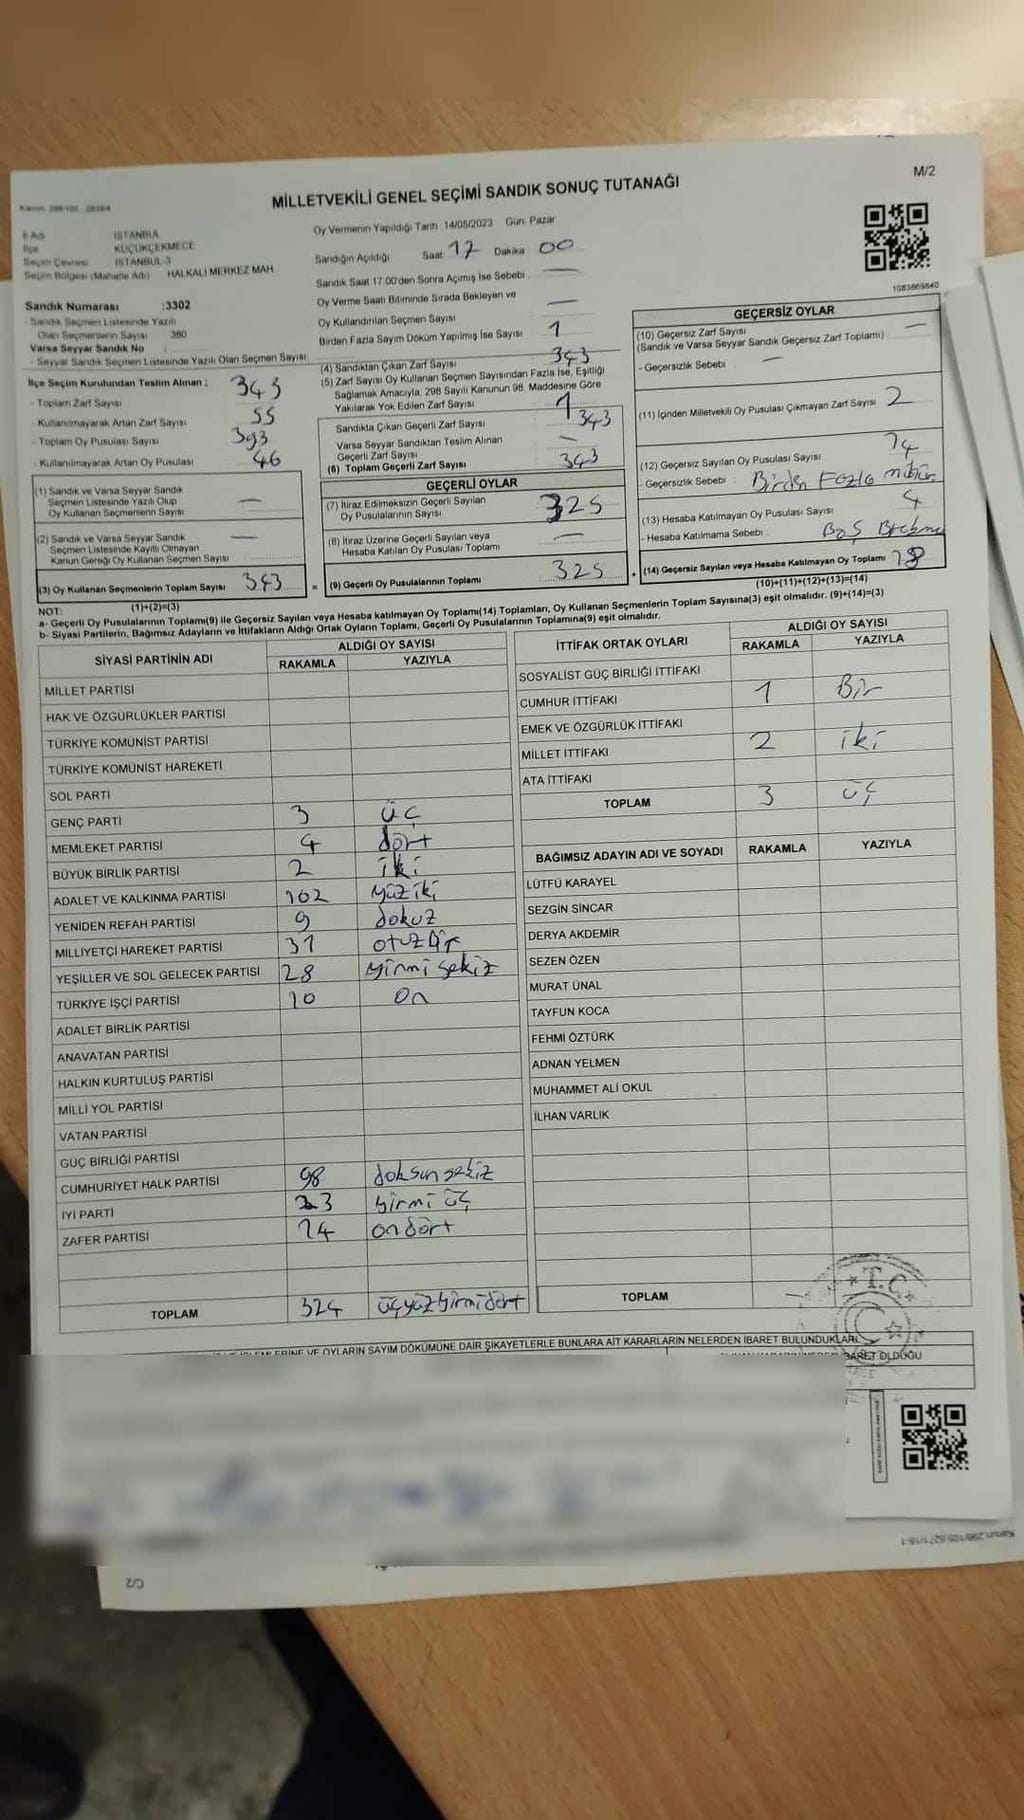 M/2
MİLLETVEKİLİ GENEL SEÇİMİ SANDIK SONUÇ TUTANAĞI
İl Adı İSTANBUL
İlçe KÜÇÜKÇEKMECE
Seçim Çevresi İSTANBUL-3
Seçim Bölgesi (Mahalle Adı) HALKALI MERKEZ MAH
Oy Vermenin Yapıldığı Tarih :14/05/2023 Gün: Pazar
Sandığın Açıldığı Saat 17 Dakika 00
Sandık Saat 17.00'den Sonra Açımış İse Sebebi —
Oy Verme Saati Bitiminde Sırada Bekleyen ve
Oy Kullandırılan Seçmen Sayısı —
Birden Fazla Sayım Döküm Yapılmış İse Sayısı 1
1083869840
Sandık Numarası :3302
- Sandık Seçmen Listesinde Yazılı
Olan Seçmenlerin Sayısı 380
Varsa Seyyar Sandık No
- Seyyar Sandık Seçmen Listesinde Yazılı Olan Seçmen Sayısı
İlçe Seçim Kurulundan Teslim Alınan :
- Toplam Zarf Sayısı 343
- Kullanılmayarak Artan Zarf Sayısı 55
- Toplam Oy Pusulası Sayısı 393
- Kullanılmayarak Artan Oy Pusulası 46
(1) Sandık ve Varsa Seyyar Sandık
Seçmen Listesinde Yazılı Olup
Oy Kullanan Seçmenlerin Sayısı —
(2) Sandık ve Varsa Seyyar Sandık
Seçmen Listesinde Kayıtlı Olmayan
Kanun Gereği Oy Kullanan Seçmen Sayısı —
(3) Oy Kullanan Seçmenlerin Toplam Sayısı 343 =
(1)+(2)=(3)
(4) Sandıktan Çıkan Zarf Sayısı 343
(5) Zarf Sayısı Oy Kullanan Seçmen Sayısından Fazla İse, Eşitliği
Sağlamak Amacıyla, 298 Sayılı Kanunun 98. Maddesine Göre
Yakılarak Yok Edilen Zarf Sayısı 1
Sandıkta Çıkan Geçerli Zarf Sayısı 343
Varsa Seyyar Sandıktan Teslim Alınan
Geçerli Zarf Sayısı —
(6) Toplam Geçerli Zarf Sayısı 343
GEÇERLİ OYLAR
(7) İtiraz Edilmeksizin Geçerli Sayılan
Oy Pusulalarının Sayısı 325
(8) İtiraz Üzerine Geçerli Sayılan veya
Hesaba Katılan Oy Pusulası Toplamı —
(9) Geçerli Oy Pusulalarının Toplamı 325 +
GEÇERSİZ OYLAR
(10) Geçersiz Zarf Sayısı —
(Sandık ve Varsa Seyyar Sandık Geçersiz Zarf Toplamı)
- Geçersizlik Sebebi —
(11) İçinden Milletvekili Oy Pusulası Çıkmayan Zarf Sayısı 2
(12) Geçersiz Sayılan Oy Pusulası Sayısı 14
- Geçersizlik Sebebi Birden Fazla mühür
(13) Hesaba Katılmayan Oy Pusulası Sayısı 4
- Hesaba Katılmama Sebebi Boş
(14) Geçersiz Sayılan veya Hesaba Katılmayan Oy Toplamı 18
(10)+(11)+(12)+(13)=(14)
NOT:
a- Geçerli Oy Pusulalarının Toplamı(9) ile Geçersiz Sayılan veya Hesaba katılmayan Oy Toplamı(14) Toplamları, Oy Kullanan Seçmenlerin Toplam Sayısına(3) eşit olmalıdır. (9)+(14)=(3)
b- Siyasi Partilerin, Bağımsız Adayların ve İttifakların Aldığı Ortak Oyların Toplamı, Geçerli Oy Pusulalarının Toplamına(9) eşit olmalıdır.
SİYASİ PARTİNİN ADI ALDIĞI OY SAYISI
RAKAMLA YAZIYLA
MİLLET PARTİSİ
HAK VE ÖZGÜRLÜKLER PARTİSİ
TÜRKİYE KOMÜNİST PARTİSİ
TÜRKİYE KOMÜNİST HAREKETİ
SOL PARTİ
GENÇ PARTİ 3 üç
MEMLEKET PARTİSİ 4 dört
BÜYÜK BİRLİK PARTİSİ 2 iki
ADALET VE KALKINMA PARTİSİ 102 yüz iki
YENİDEN REFAH PARTİSİ 9 dokuz
MİLLİYETÇİ HAREKET PARTİSİ 31 otuz bir
YEŞİLLER VE SOL GELECEK PARTİSİ 28 yirmi sekiz
TÜRKİYE İŞÇİ PARTİSİ 10 on
ADALET BİRLİK PARTİSİ
ANAVATAN PARTİSİ
HALKIN KURTULUŞ PARTİSİ
MİLLİ YOL PARTİSİ
VATAN PARTİSİ
GÜÇ BİRLİĞİ PARTİSİ
CUMHURİYET HALK PARTİSİ 98 doksan sekiz
İYİ PARTİ 23 yirmi üç
ZAFER PARTİSİ 14 on dört
TOPLAM 324 üçyüz yirmi dört
İTTİFAK ORTAK OYLARI ALDIĞI OY SAYISI
RAKAMLA YAZIYLA
SOSYALİST GÜÇ BİRLİĞİ İTTİFAKI
CUMHUR İTTİFAKI 1 Bir
EMEK VE ÖZGÜRLÜK İTTİFAKI
MİLLET İTTİFAKI 2 iki
ATA İTTİFAKI
TOPLAM 3 üç
BAĞIMSIZ ADAYIN ADI VE SOYADI RAKAMLA YAZIYLA
LÜTFÜ KARAYEL
SEZGİN SİNCAR
DERYA AKDEMİR
SEZEN ÖZEN
MURAT ÜNAL
TAYFUN KOCA
FEHMİ ÖZTÜRK
ADNAN YELMEN
MUHAMMET ALİ OKUL
İLHAN VARLIK
TOPLAM
T.C.
VE OYLARIN SAYIM DÖKÜMÜNE DAİR ŞİKAYETLERLE BUNLARA AİT KARARLARIN NELERDEN İBARET BULUNDUKLARI
İBARET OLDUĞU
C/2